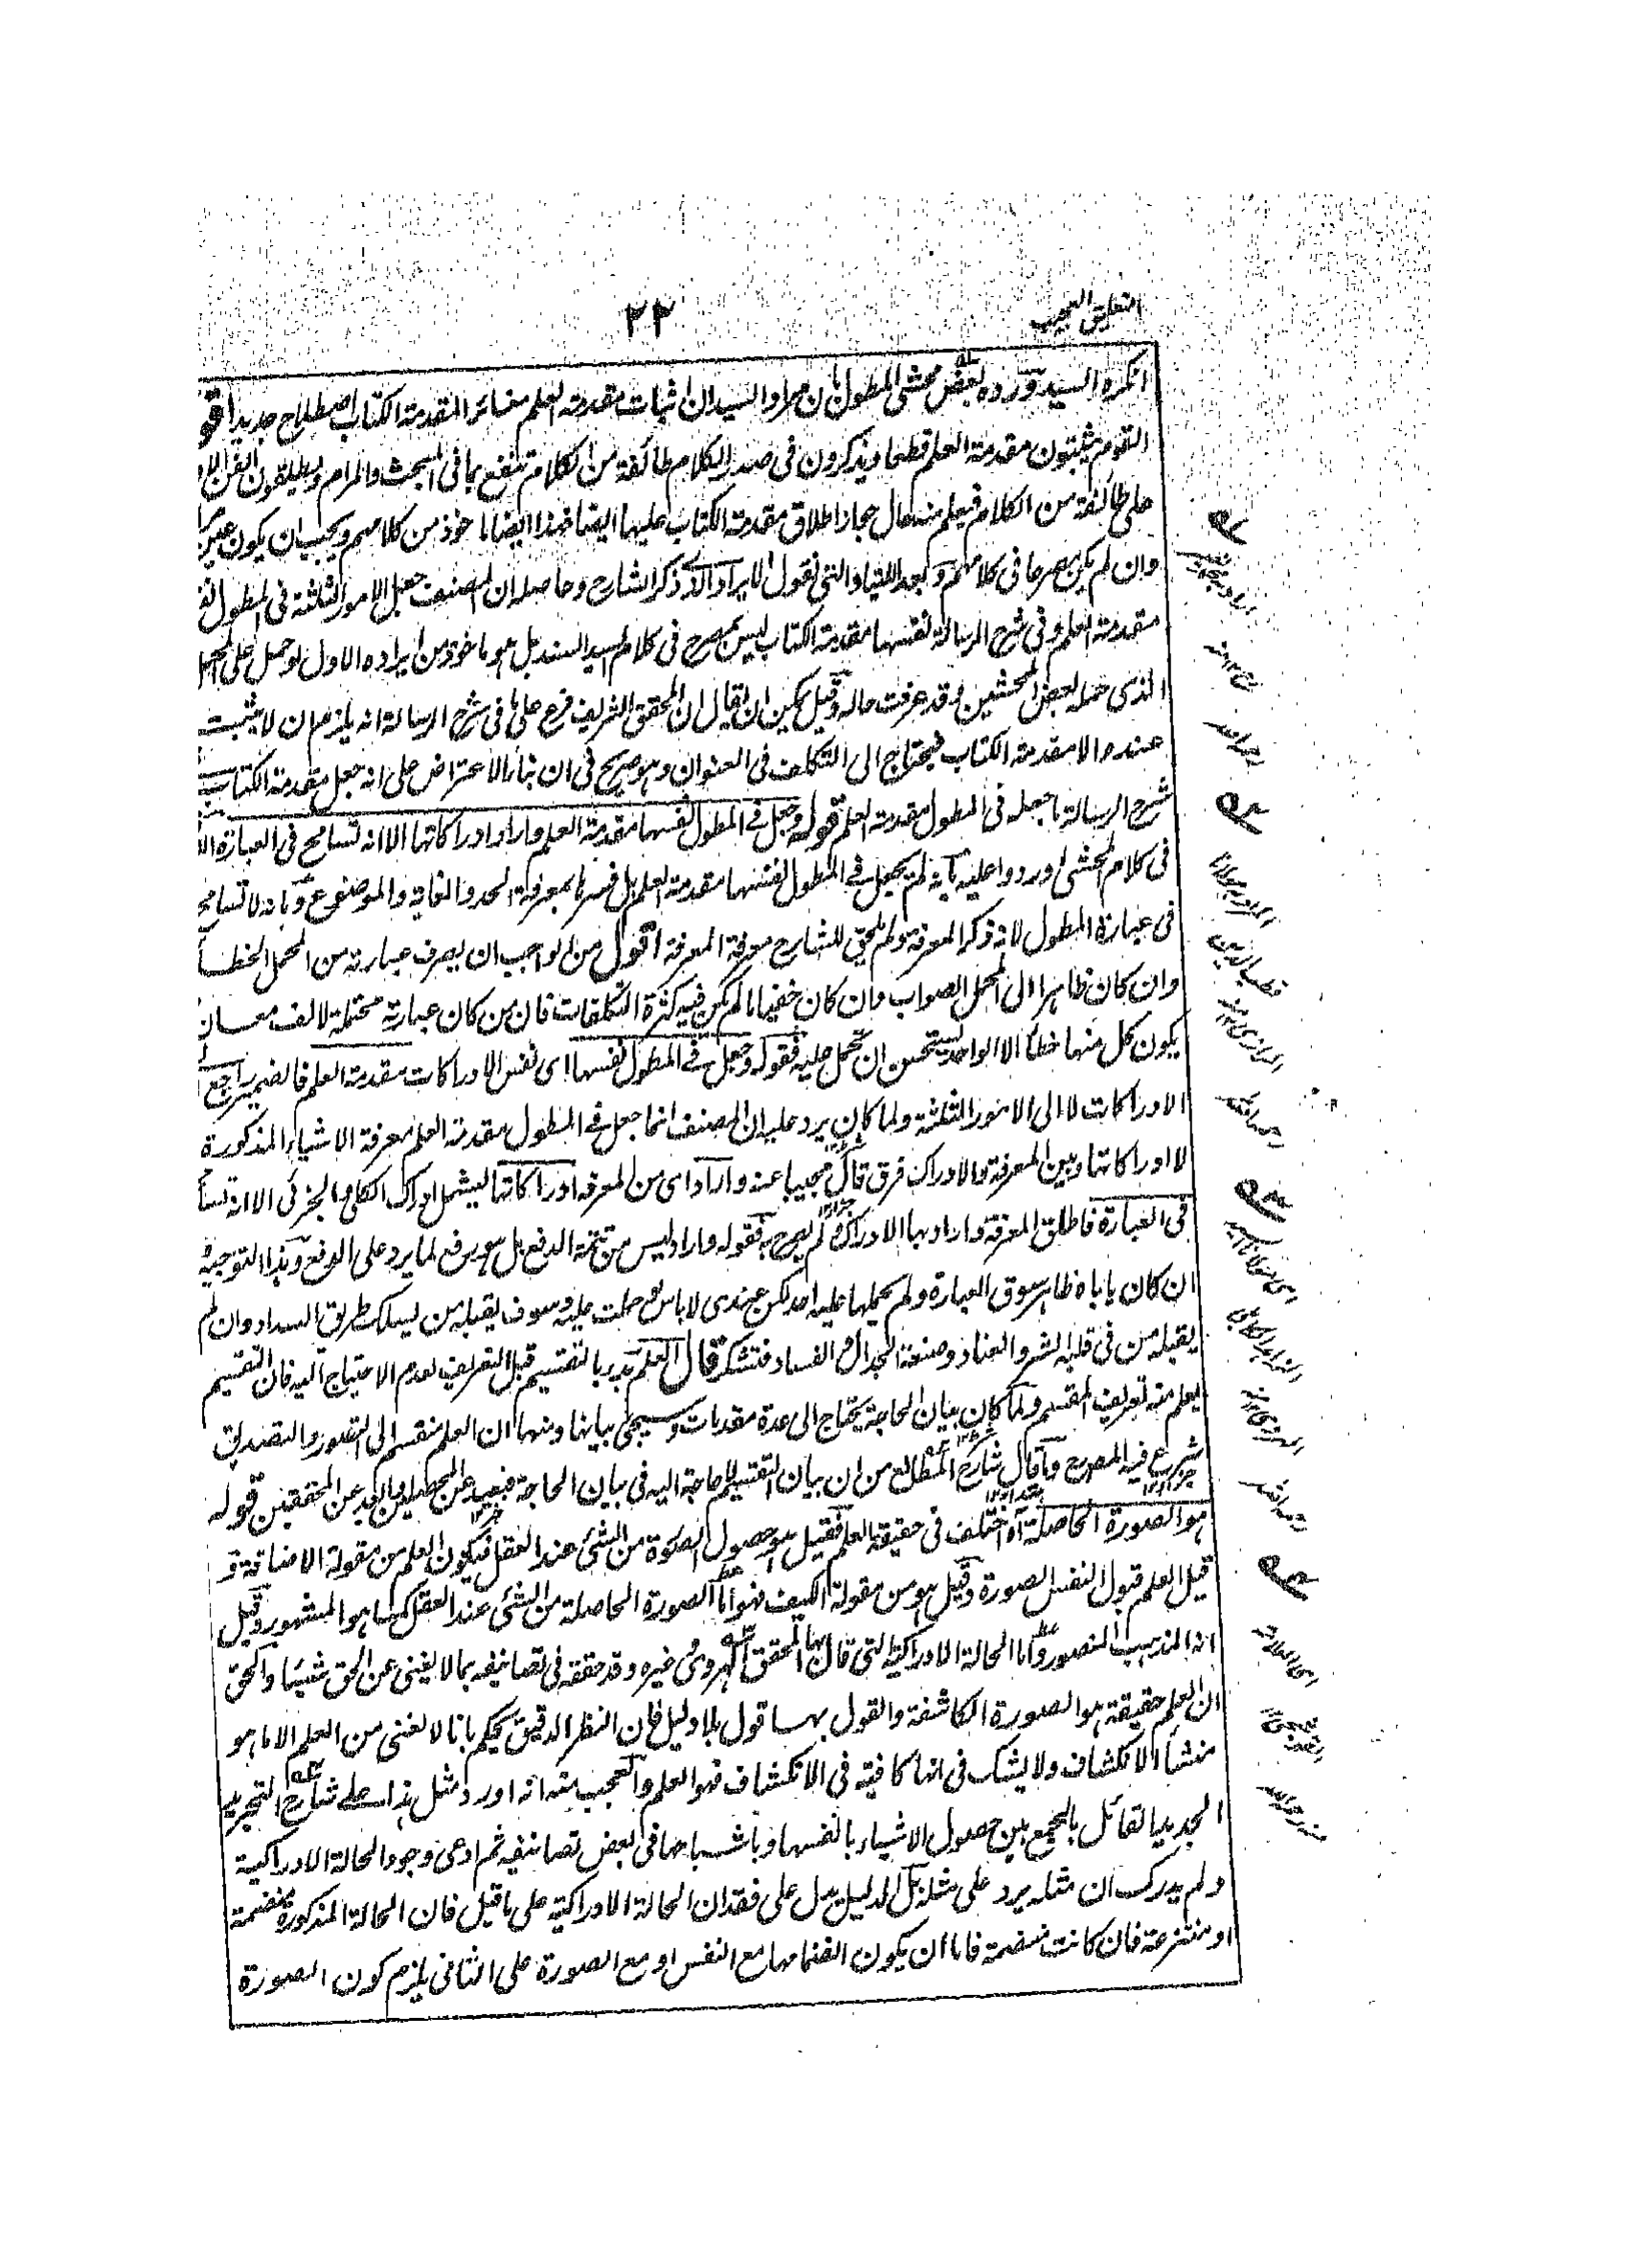 التعليق العجيب
٢٢
انكره السيد ورده بعض محشى المطول بان مراد السيد ان اثبات مقدمة العلم مغائر المقدمة الكتاب اصطلاح جديد
القوم يثبتون مقدمة العلم قطعا ويذكرون فى صدر الكلام طائفة من الكلام تنفع بما فى المبحث والمرام ويطلقون
على طائفة من الكلام فيعلم منه حال جواز اطلاق مقدمة الكتاب عليها ايضا فهذا ايضا ماخوذ من كلامهم ويجب ان يكون
وان لم يكن مصرحا فى كلامهم وبعد اللتيا والتى نقول الايراد الذى ذكر الشارح وحاصله ان المصنف جعل الامور الثلثة فى المطول
مقدمة العلم وفى شرح الرسالة نفسها مقدمة الكتاب ليس بمصرح فى كلام السيد السند بل هو ماخوذ من ايراده الاول لو حمل على
الذى حمله بعض المحشين وقد عرفت حاله وقيل يمكن ان يقال ان المحقق الشريف فرع على ما فى شرح الرسالة انه يلزم ان لا يثبت
عنده الا مقدمة الكتاب فيحتاج الى التكلف فى العنوان وهو صريح فى ان بناء الاعتراض على انه جعل مقدمة الكتاب
شرح الرسالة ما جعله فى المطول مقدمة العلم قوله وجعل فى المطول نفسها مقدمة العلم واراد ادراكاتها الا انه تسامح فى العبارة
فى كلام المحشى اوردوا عليه بانه لم يجعل فى المطول نفسها مقدمة العلم بل فسرها بمعرفة الحد والغاية والموضوع وبانه لا تسامح
فى عبارة المطول لانه ذكر المعرفة ولم يلحق للشارح معرفة المعرفة اقول من الواجب ان يصرف عبارته من المحمل الخطأ
وان كان ظاهرا الى المحمل الصواب وان كان خفيا ما لم يكن فيه كثرة التكلفات فان من كان عبارته محتملة لالف معان
يكون كل منها خطأ الا الواحد يستحسن ان تحمل عليه فقوله وجعل فى المطول نفسها اى نفس الادراكات مقدمة العلم فالضمير راجع
الادراكات لا الى الامور الثلثة ولما كان يرد عليه ان المصنف انما جعل فى المطول مقدمة العلم معرفة الاشياء المذكورة
لا ادراكاتها وبين المعرفة والادراك فرق قال مجيبا عنه واراد اى من المعرفة ادراكاتها ليشمل ادراك الكلى والجزئى الا انه
فى العبارة فاطلق المعرفة واراد بها الادراك ولم يصرح به فقوله واراد ليس من تتمة الدفع بل هو رفع لما يرد على الدفع وهذا التوجيه
ان كان ياباه ظاهر سوق العبارة ولم يحملها عليه احد لكن عندى لا باس لو حملت عليه وسوف يقبله من يسلك طريق السداد وان لم
يقبله من فى قلبه الشر والعناد وصنعة الجدال والفساد فتشكر قال العلم بدء بالتقسيم قبل التعريف لعدم الاحتياج اليه فان التقسيم
يعلم منه تعريف المقسم ولما كان بيان الحاجة يحتاج الى عدة مقدمات وسيجئ بيانها ومنها ان العلم منقسم الى التصور والتصديق
شرع فيه المصرح وما قال شارح المطالع من ان بيان التقسيم لا حاجة اليه فى بيان الحاجة فبعيد عن المحصلين وابعد عن المحققين قوله
هو الصورة الحاصلة آه اختلف فى حقيقة العلم فقيل هو حصول الصورة من الشئ عند العقل فيكون العلم من مقولة الاضافة و
قيل العلم قبول النفس الصورة وقيل هو من مقولة الكيف فهو اما الصورة الحاصلة من الشئ عند العقل كما هو المشهور وقيل
انه المذهب المنصور واما الحالة الادراكية التى قال بها المحقق الهروى وغيره وقد حققه فى تصانيفه بما لا يغنى عن الحق شيئا والحق
ان العلم حقيقة هو الصورة الكاشفة والقول بها قول بلا دليل فان النظر الدقيق يحكم بانا لا نعنى من العلم الا ما هو
منشأ الانكشاف ولا يشك فى انها كافية فى الانكشاف فهو العلم والعجب منه انه اورد مثل هذا على شارح التجريد
الجديد القائل بالجمع بين حصول الاشياء بانفسها وباشباحها فى بعض تصانيفه ثم ادعى وجود الحالة الادراكية
ولم يدرك ان مثله يرد على مثله بل الدليل يدل على فقدان الحالة الادراكية على ما قيل فان الحالة المذكورة منضمة
او منتزعة فان كانت منضمة فاما ان يكون انضمامها مع النفس او مع الصورة على الثانى يلزم كون الصورة